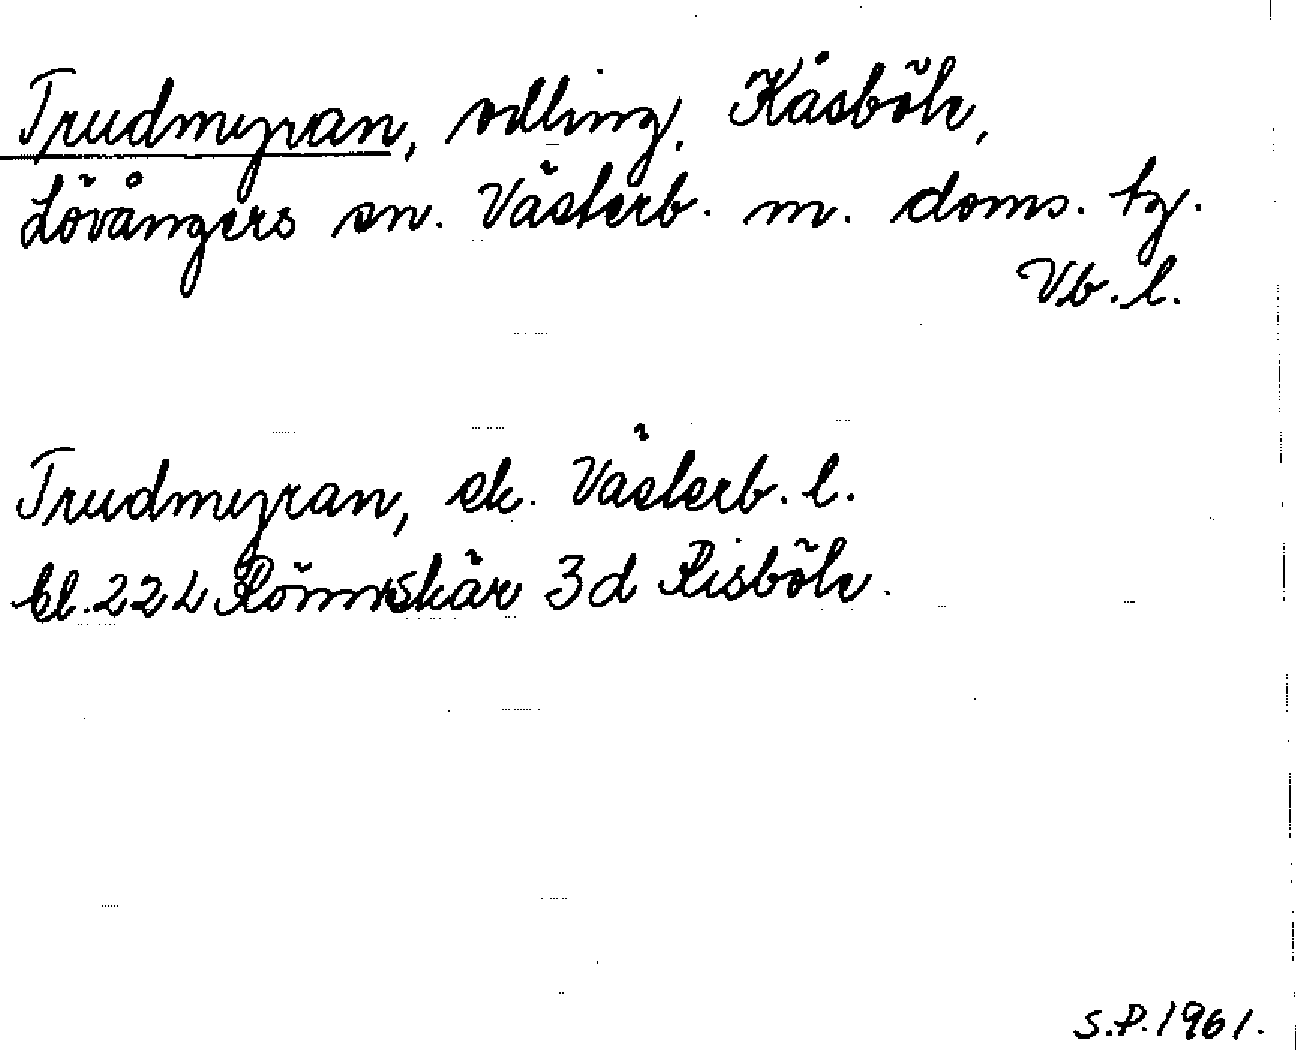 Trudmyran, odling, Kåsböle,
Lövångers sn. Västerb. m. doms. tg.
Vb. l.
Trudmyran, ek. Västerb. l.
bl. 22 L Rönnskär 3d Risböle.
S.P. 1961.